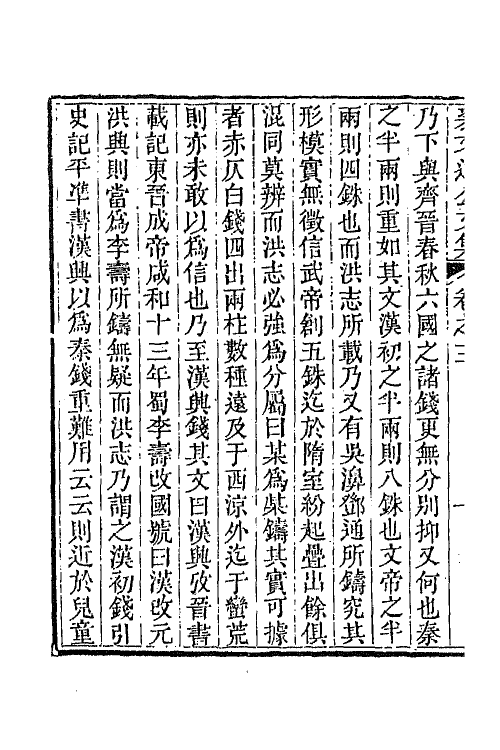 乃下與齊晉春秋六國之諸錢更無分別抑又何也秦
之半兩則重如其文漢初之半兩則八銖也文帝之半
兩則四銖也而洪志所載乃又有吳濞鄧通所鑄究其
形模實無徵信武帝創五銖迄於隋室紛起疊出餘俱
混同莫辨而洪志必強爲分屬曰某爲某鑄其實可據
者赤仄白錢四出兩柱數種遠及于西涼外迄于蠻荒
則亦未敢以爲信也乃至漢興錢其文曰漢興攷晉書
載記東晉成帝咸和十三年蜀李壽改國號曰漢改元
洪興則當爲李壽所鑄無疑而洪志乃謂之漢初錢引
史記平準書漢興以爲秦錢重難用云云則近於兒童